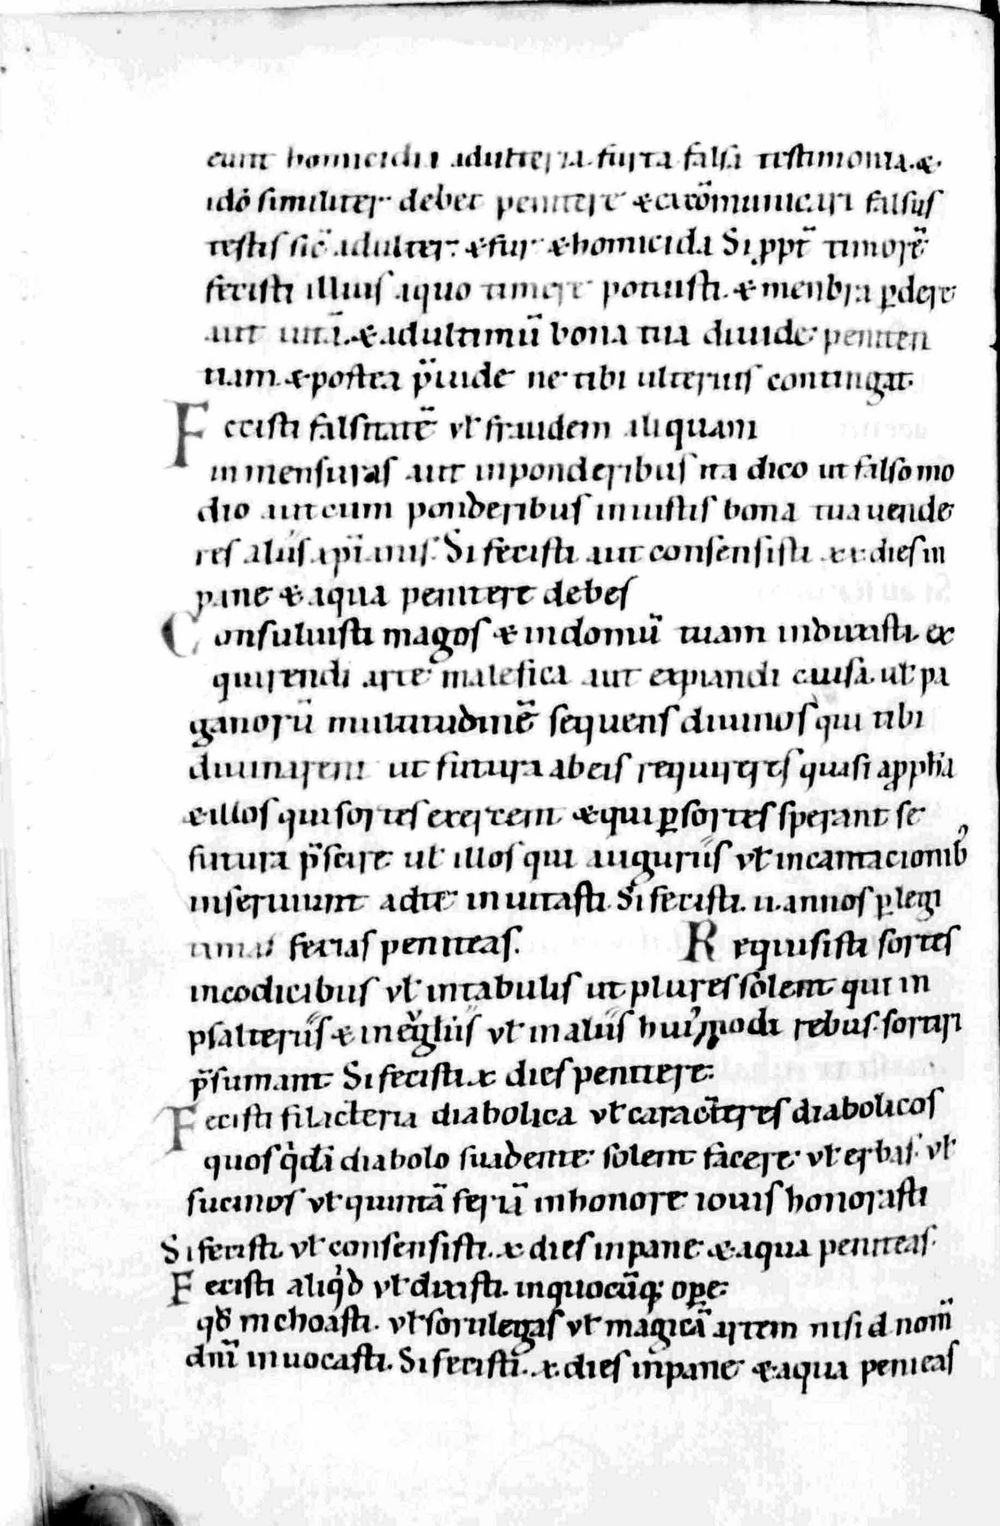 eunt homicidia adulteria. furta falsa testimonia. &.
idõ similiter debet penitere & excõmunicari falsus
testis sic̃ adulter. & fur & homicida Si ꝓpt̃ timorẽ
fecisti illius a quo timere potuisti. & menbra ꝑdere
aut uitã. & ad ultimũ bona tua diuide peniten
tiam. & postea p̃uide ne tibi ulterius contingat.
Fecisti falsitatẽ ut̃ fraudem aliquam
in mensuras aut in ponderibus ita dico ut falso mo
dio aut cum ponderibus iniustis bona tua uende
res aliis xpĩanis. Si fecisti aut consensisti .xx. dies in
pane & aqua penitere debes
Consuluisti magos & in domũ tuam induxisti. ex
quirendi arte malefica aut expiandi causa. ut̃ pa
ganorũ multitudinẽ sequens diuinos qui tibi
diuinarent ut futura ab eis requireres quasi a ꝓph̃a
& illos qui sortes exercent & qui ꝑ sortes sperant se
futura p̃scire ut̃ illos qui auguriis ut̃ incantacionib᾿
inseruiunt ad te inuitasti. Si fecisti. ii. annos ꝑ legi
timas ferias peniteas. Requisisti sortes
in codicibus ut̃ in tabulis ut plures solent qui in
psalteriis & in eũgliis ut̃ in aliis hui᾿modi rebus. sortiri
p̃sumant Si fecisti x dies penitere.
Fecisti filacteria diabolica ut̃ caracteres diabolicos
quos q̓dã diabolo suadente solent facere ut̃ erbas ut̃
sucinos ut̃ quintã feriã in honore iouis honorasti
Si fecisti. ut̃ consensisti. x dies in pane & aqua peniteas.
Fecisti aliq̓d ut̃ dixisti. in quocũq; oꝑe.
qđ inchoasti. ut̃ sortilegas ut̃ magicã artem nisi d nom̃
dnĩ inuocasti. Si fecisti. .x. dies in pane & aqua peniteas